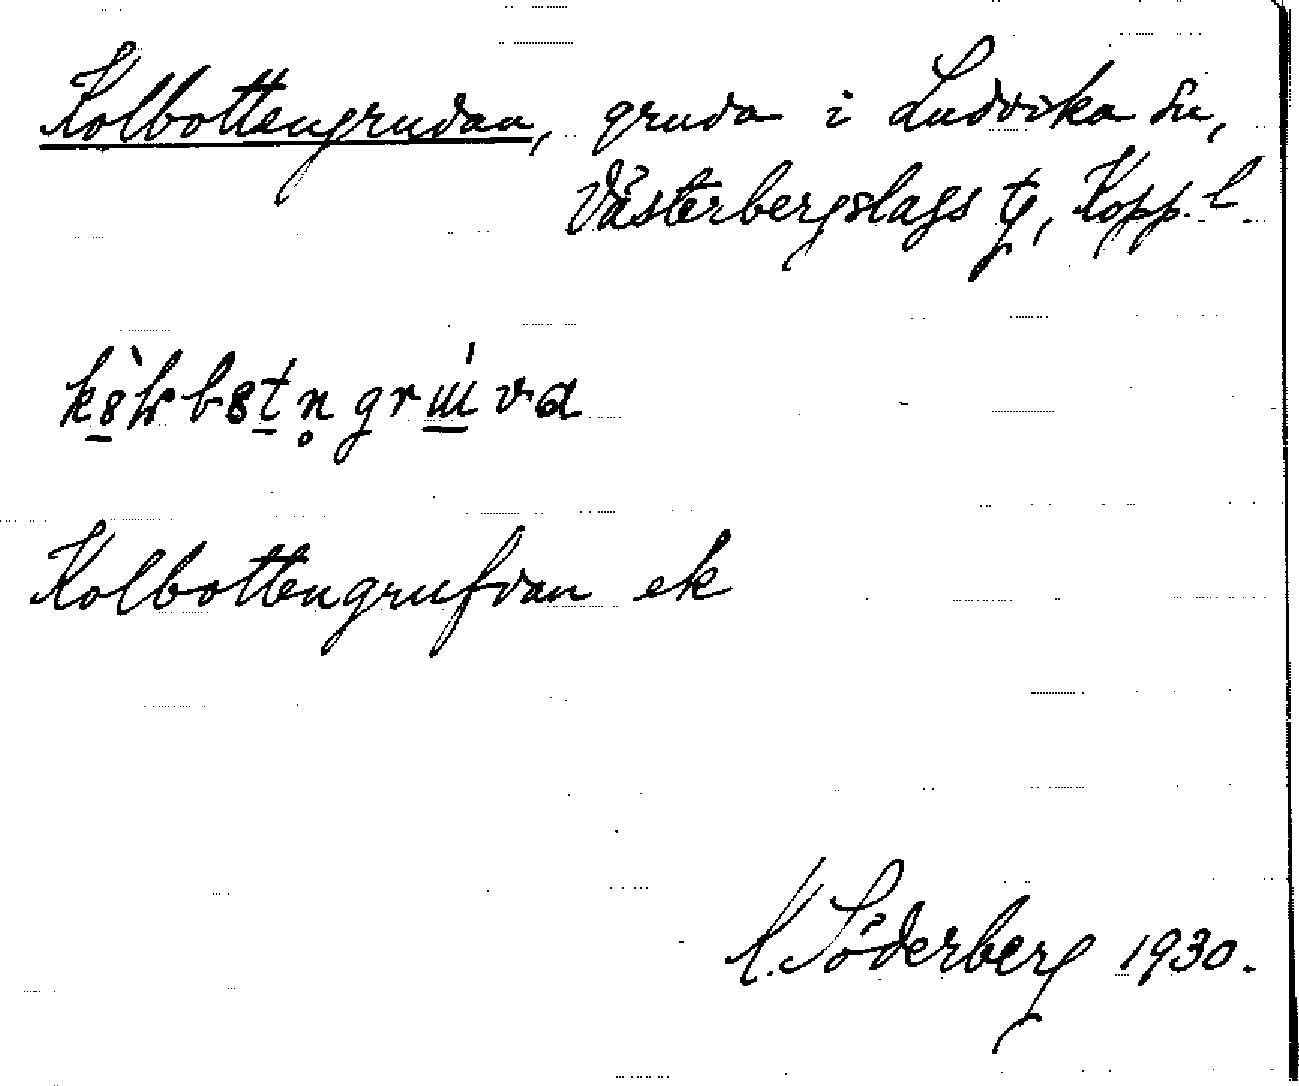 Kolbottengruvan, gruva i Ludvika sn,
Västerbergslags tg, Kopp. l.
Kolbottengrufvan ek
Söderberg 1930.